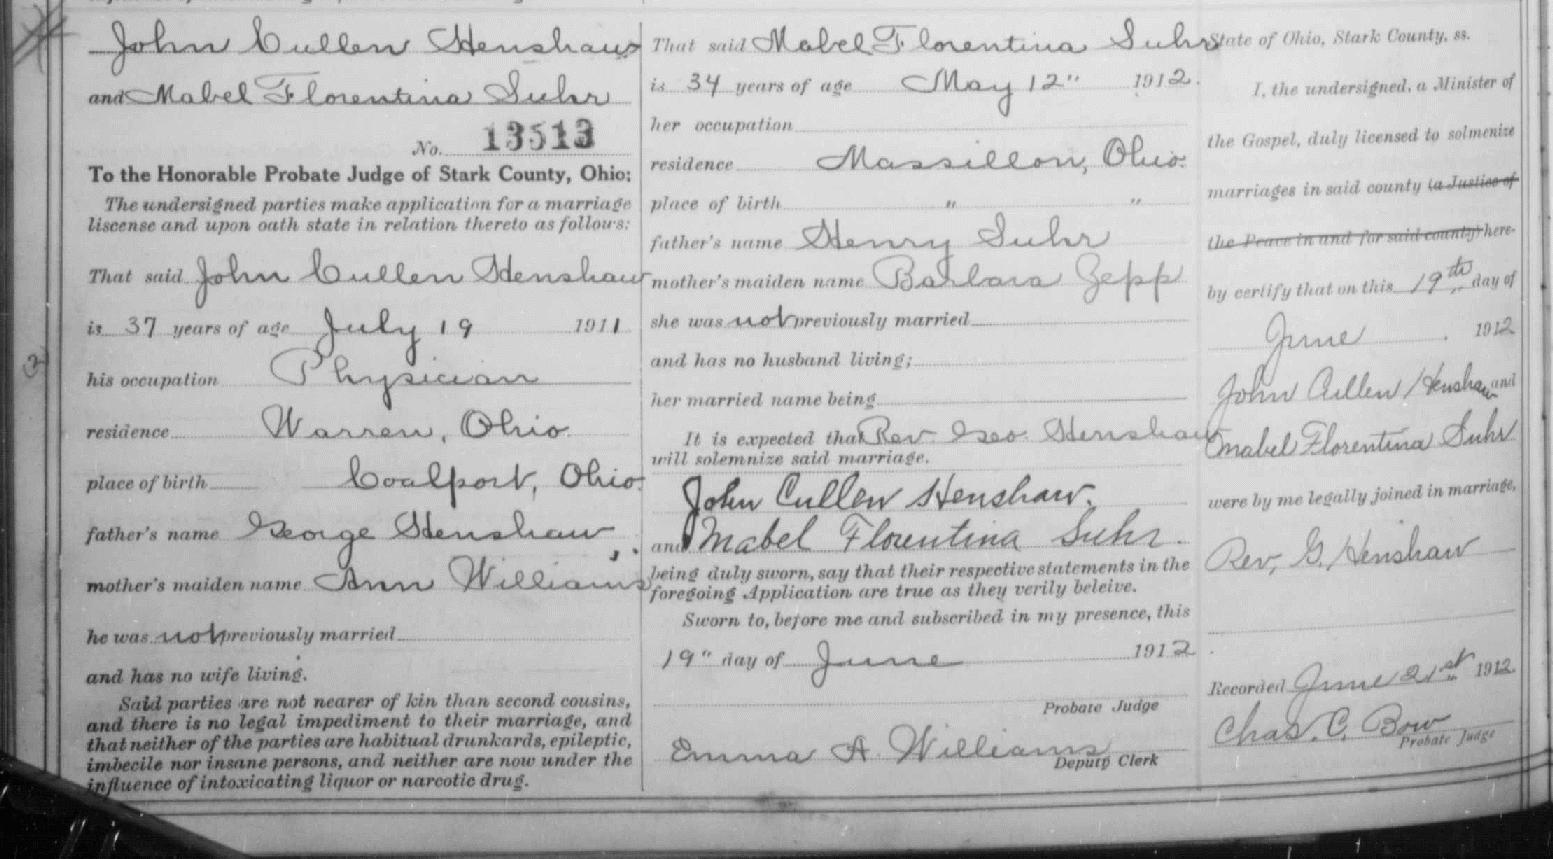 John Cullen Henshaw
and Mabel Florentina Suhr
No. 13513
To the Honorable Probate Judge of Stark County, Ohio:
The undersigned parties make application for a marriage
liscense and upon oath state in relation thereto as follows:
That said John Cullen Henshaw
is 37 years of age July 19 1911
his occupation Physician
residence Warren, Ohio.
place of birth Coalport, Ohio.
father's name George Henshaw,
mother's maiden name Ann Williams
he was not previously married
and has no wife living.
Said parties are not nearer of kin than second cousins,
and there is no legal impediment to their marriage, and
that neither of the parties are habitual drunkards, epileptic,
imbecile nor insane persons, and neither are now under the
influence of intoxicating liquor or narcotic drug.
That said Mabel Florentina Suhr
is 34 years of age May 12" 1912.
her occupation
residence Massillon, Ohio.
place of birth " "
father's name Henry Suhr
mother's maiden name Barbara Zepp
she was not previously married
and has no husband living;
her married name being
It is expected that Rev. Geo. Henshaw
will solemnize said marriage.
John Cullen Henshaw.
and Mabel Florentina Suhr.
being duly sworn, say that their respective statements in the
foregoing Application are true as they verily beleive.
Sworn to, before me and subscribed in my presence, this
19" day of June 1912.
Probate Judge
Emma A. Williams
Deputy Clerk
State of Ohio, Stark County, ss.
I, the undersigned, a Minister of
the Gospel, duly licensed to solmenize
marriages in said county (a Justice of
the Peace in and for said county) here-
by certify that on this 19th day of
June 1912
John Cullen Henshaw and
Mabel Florentina Suhr
were by me legally joined in marriage,
Rev, G, Henshaw
Recorded June 21st 1912.
Chas. C. Bow
Probate Judge